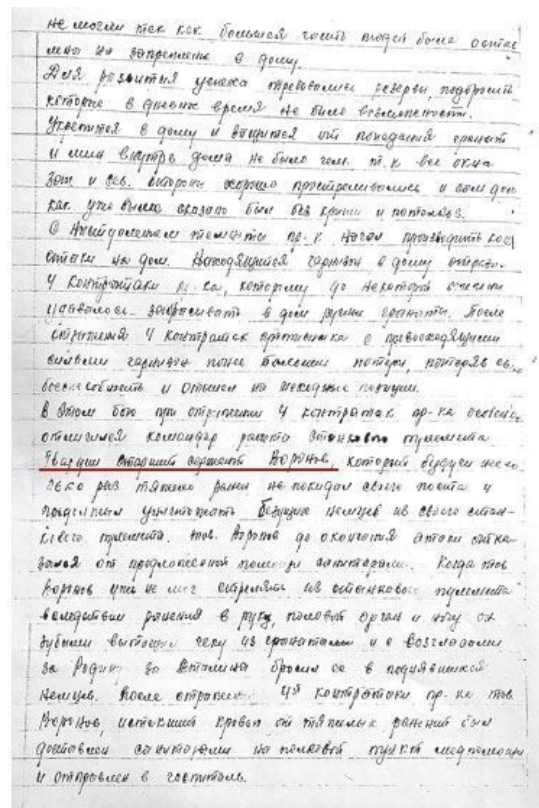 не могли так как большая часть людей была остав
лена на закрепление в дому.
Для развития успеха требовались резервы, подбросить
которые в дневное время не было возможности.
Укрепится в дому и защитится от попадания гранат
и мин внутрь дома не было чем. т.к все окна
зап. и сев. стороны хорошо простреливались и сам дом
как уже было сказано был без крыши и потолков.
С наступлением темноты пр-к начал производить кон
атаки на дом. Находящийся гарнизон в дому отрази
4 контратаки п-ка, которому до некоторой степени
удавалось забрасывать в дом ручные гранаты. После
отражения 4 контратак противника с превосходящими
силами гарнизон понес большие потери, потеряв св.
боеспособность и отошел на исходные позиции.
В этом бою при отражении 4 контратак пр-ка особенно
отличился командир расчета станкового пулемета
Гвардии старший сержант Воронов, который будучи неско
лько раз тяжело ранен не покидал своего поста и
продолжал уничтожать бегущих немцев из своего стан-
кового пулемета. тов. Воронов до окончания атаки отка-
зался от предложенной помощи санитарами. Когда тов
Воронов уже не мог стрелять из станкового пулемета
вследствии ранения в руку, половой орган и ногу он
зубами вытащил чеку из гранаты и с возгласами
за Родину за Сталина бросил ее в поднявшихся
немцев. После отражения 4й контратаки пр-ка тов.
Воронов, истекший кровью от тяжелых ранений был
доставлен санитарами на полковой пункт медпомощи
и отправлен в госпиталь.